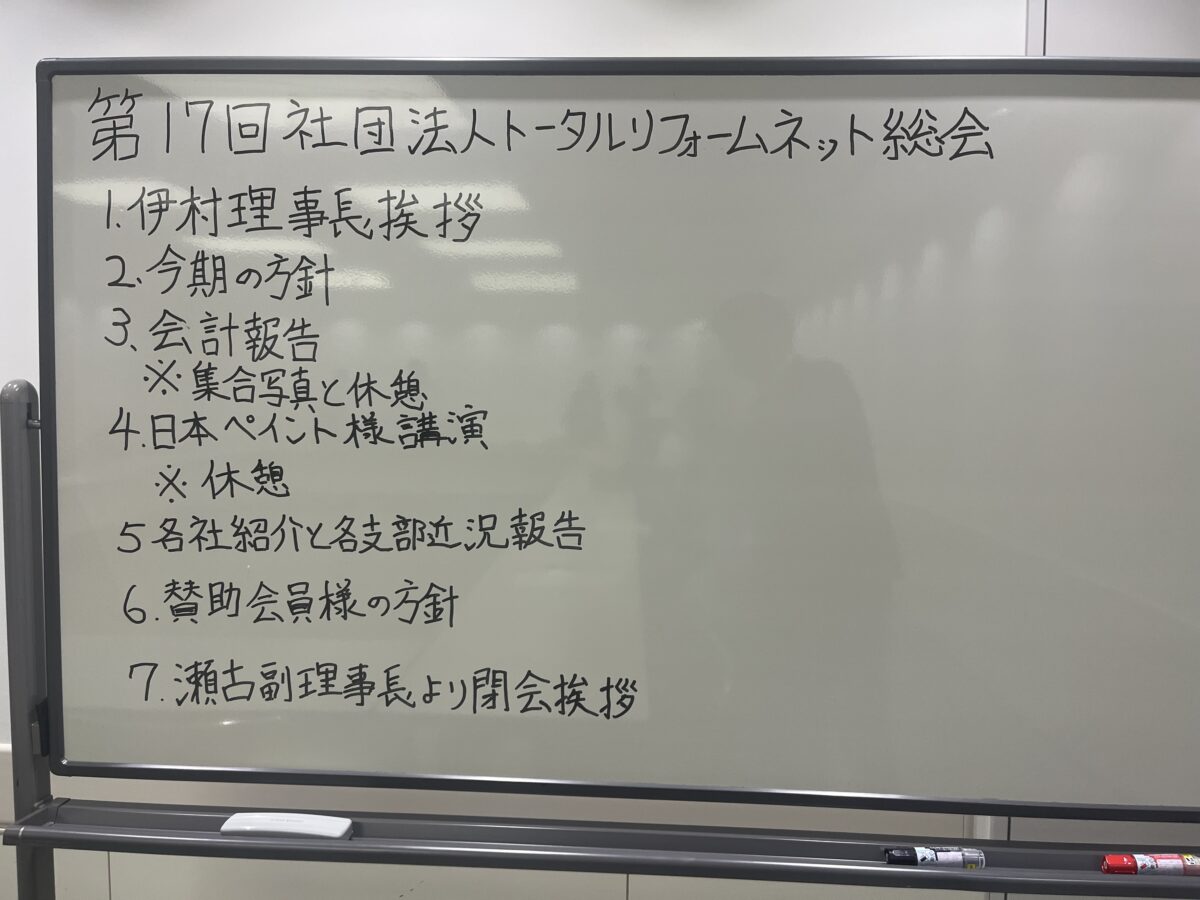 第17回社団法人トータルリフォームネット総会
1.伊村理事長挨拶
2.今期の方針
3.会計報告
※集合写真と休憩
4.日本ペイント様講演
※休憩
5各社紹介と各支部近況報告
6.賛助会員様の方針
7.瀬古副理事長より閉会挨拶